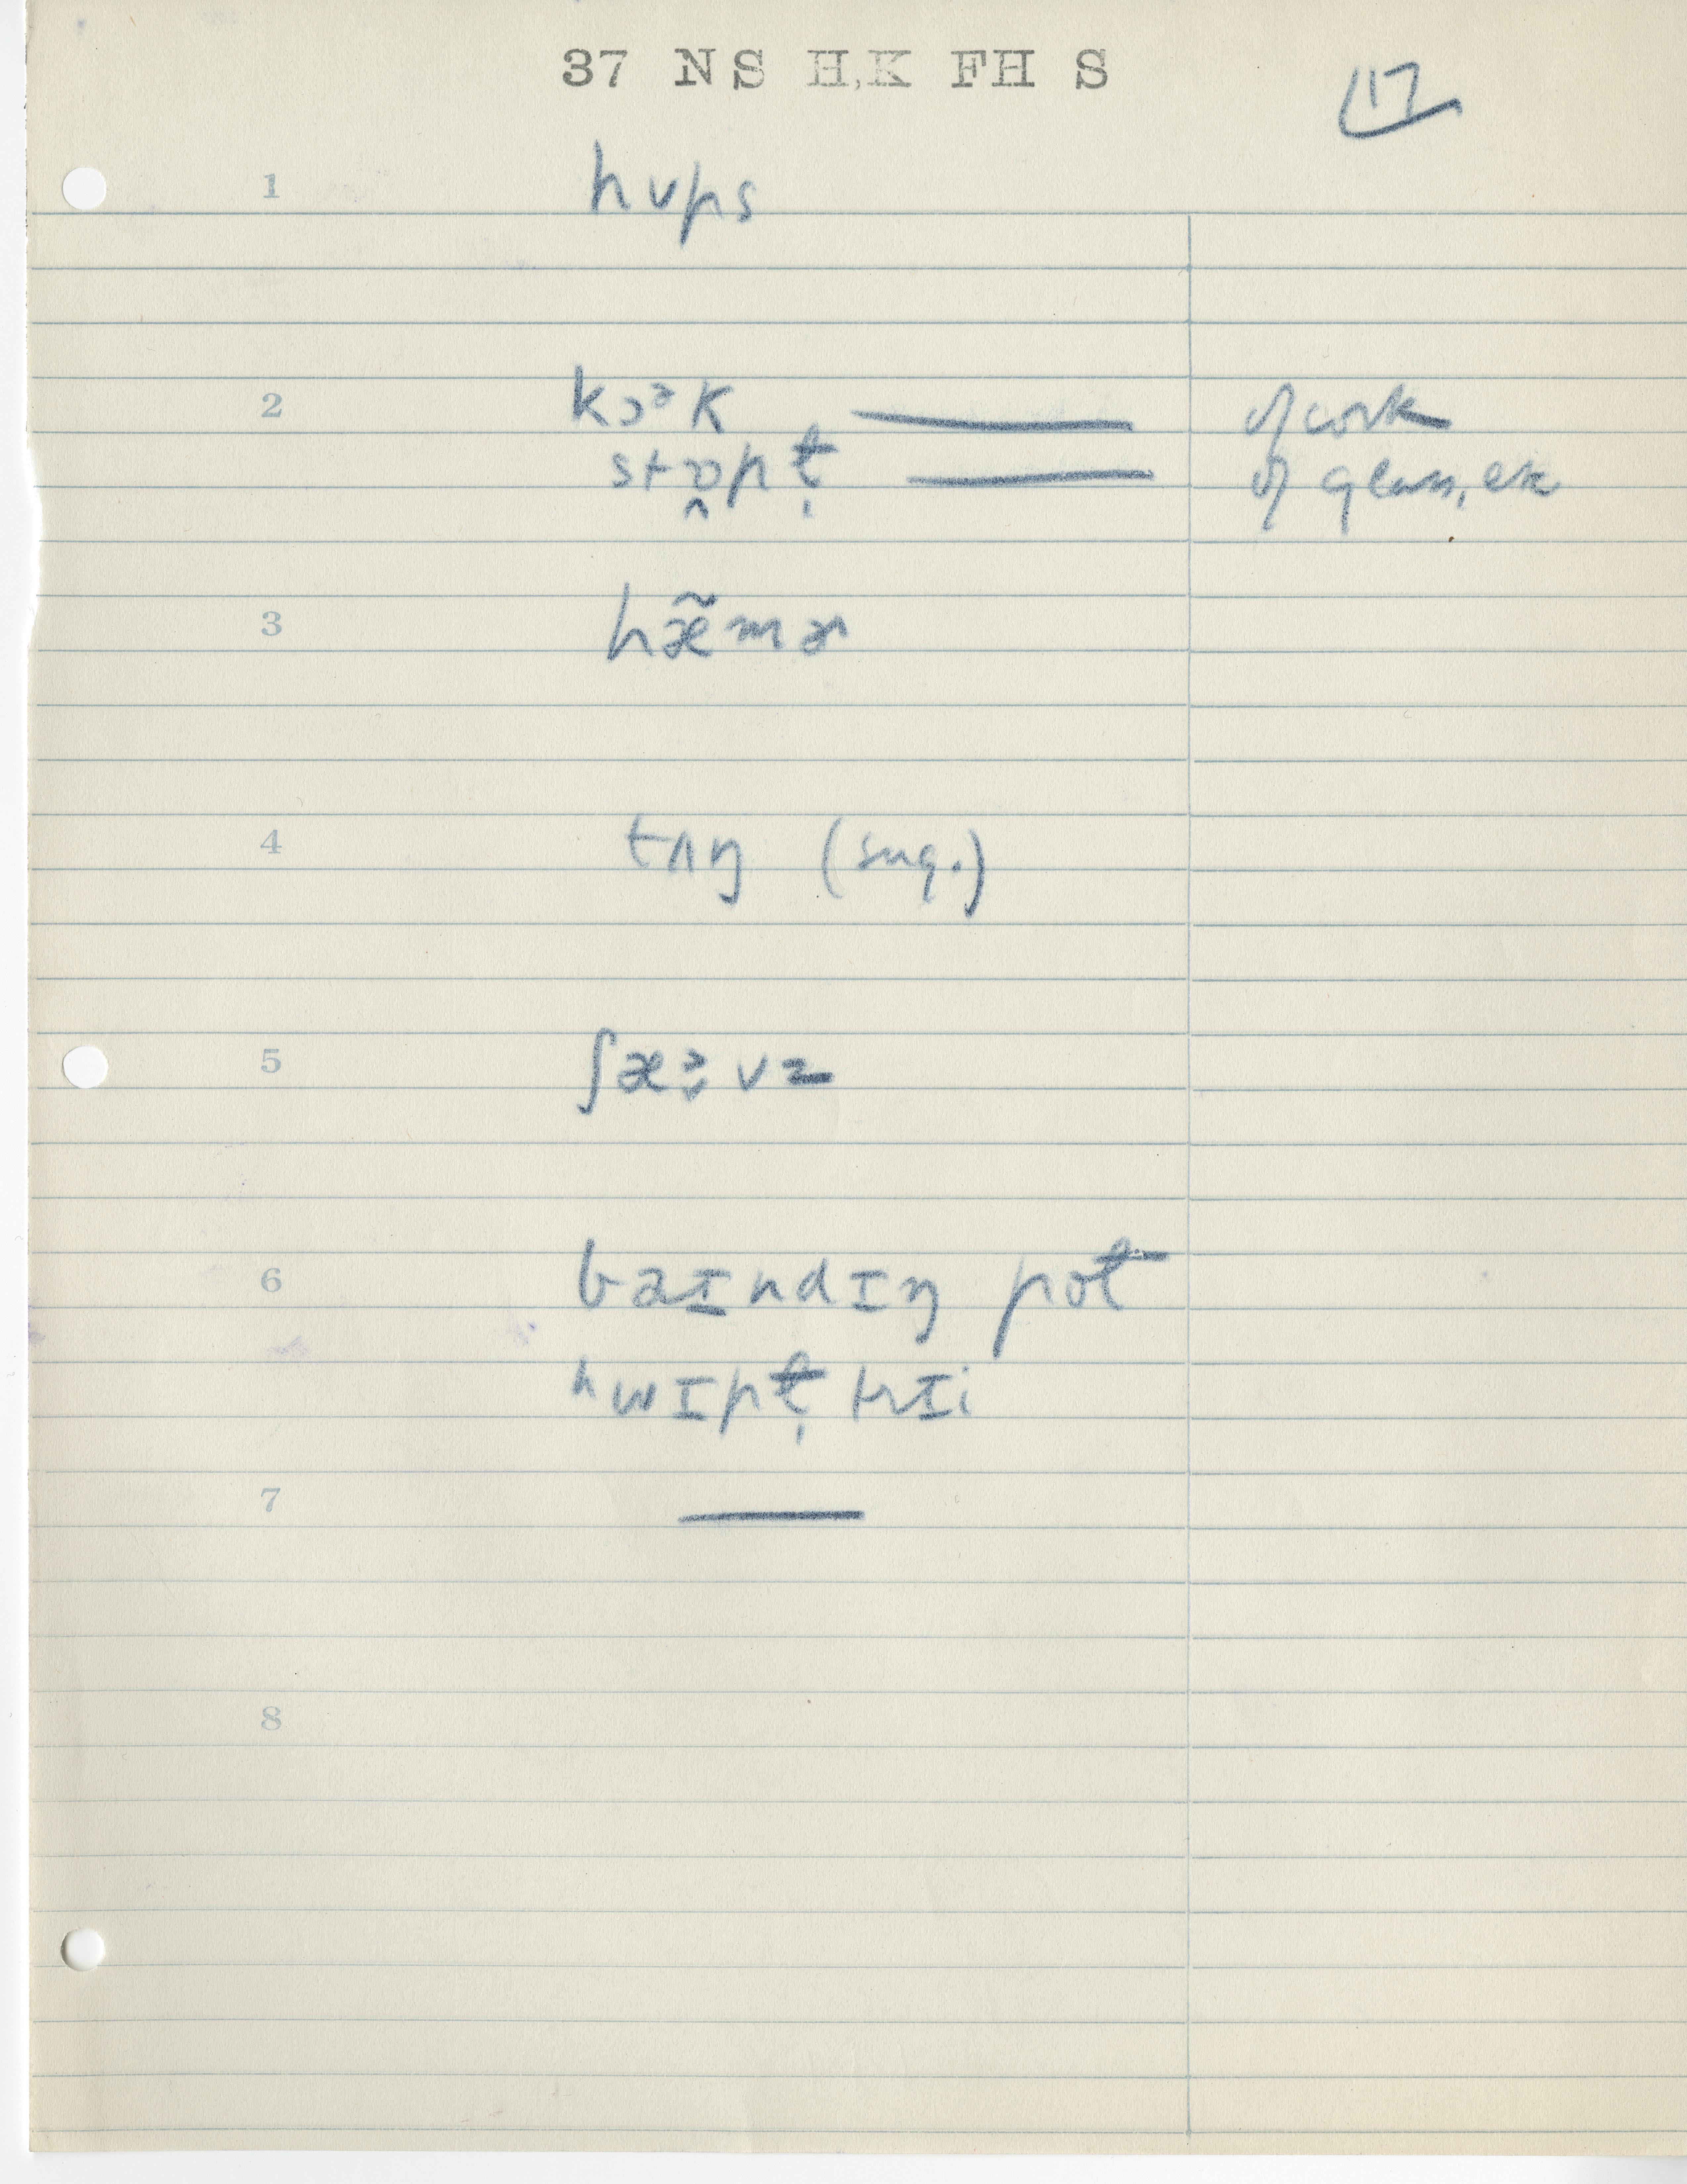 37 NS H,K FH S
17
1 hʊps
2 kɔᵊk — of cork
stɒ̭pt̩ — of glass, etc
3 hæ̃mɚ
4 tʌŋ (sing.)
5 ʃæə̯vz
6 baɪndɪŋ pot
hwɪpt̩trɪi
7 —
8